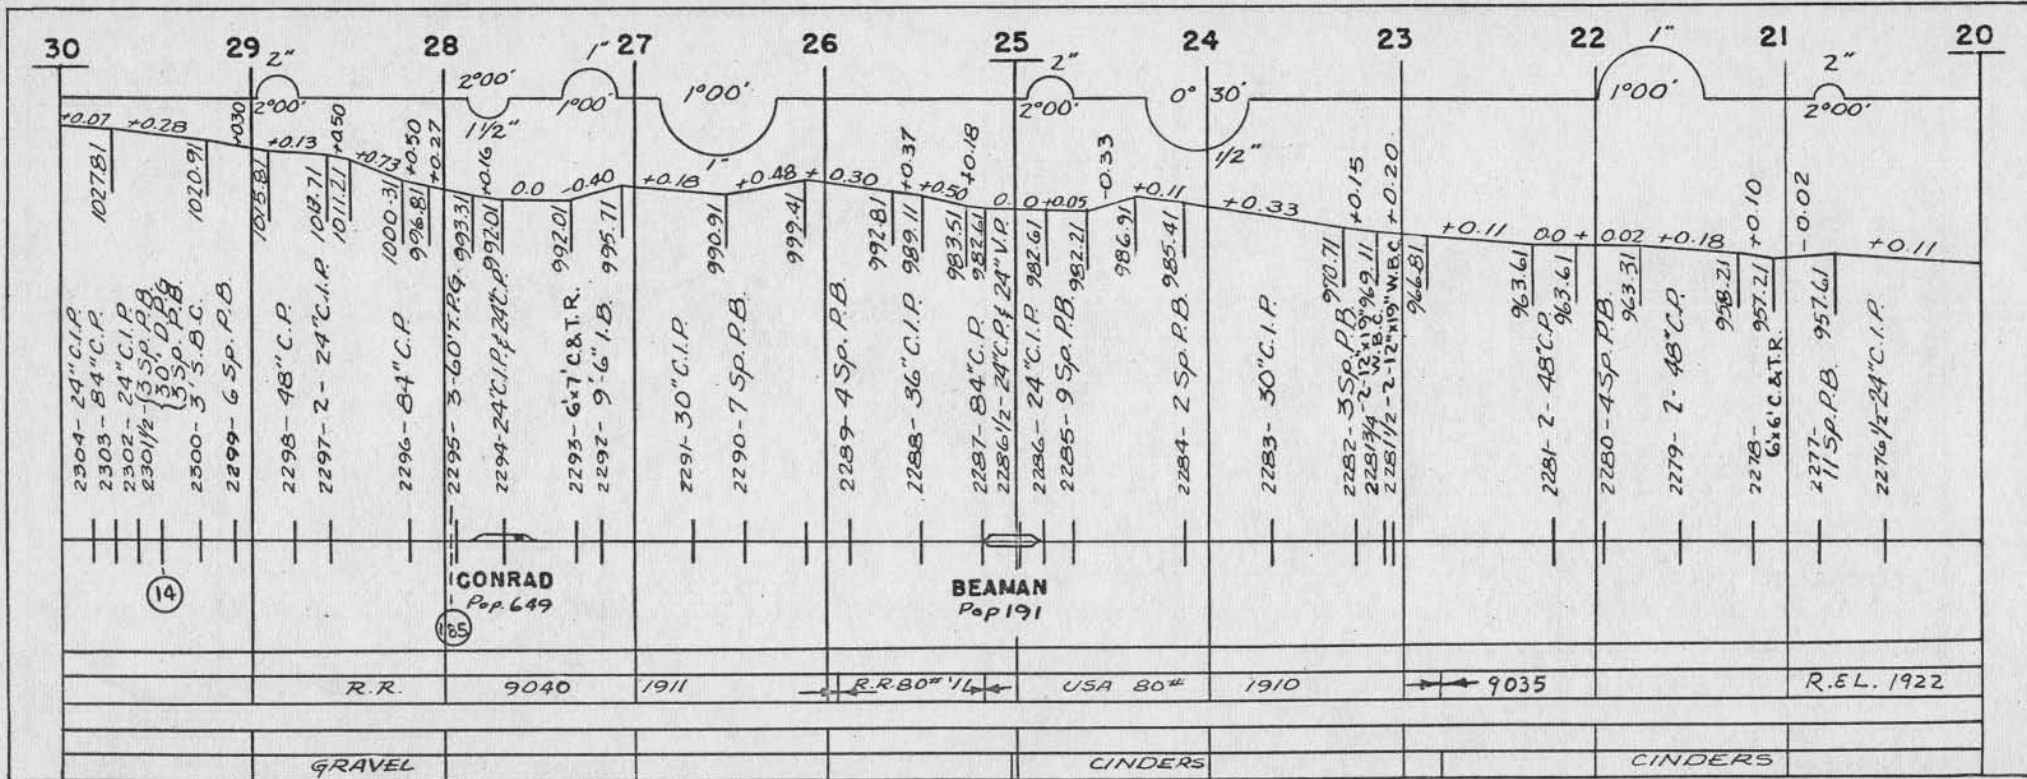 30 29 28 27 26 25 24 23 22 21 20
2" 2°00' 1" 1°00' 2" 0° 30' 1" 2"
2°00' 1½" 1°00' 1" 2°00' 1/2" 1°00' 2°00'
+0.07 +0.28 +030 +0.13 +0.50 +0.73 +0.50 +0.27 +0.16 0.0 -0.40 +0.18 +0.48 + 0.30 +0.37 +0.50 +0.18 0.0 +0.05 -0.33 +0.11 +0.33 +0.15 +0.20 +0.11 0.0 + 0.02 +0.18 +0.10 -0.02 +0.11
1027.81 1020.91 1015.81 1011.21 1000.31 996.81 993.31 992.01 992.01 995.71 990.91 999.41 992.81 989.11 983.51 982.61 982.61 982.21 986.91 985.41 970.71 969.11 966.81 963.61 963.61 963.31 958.21 957.21 957.61
2304- 24" C.I.P.
2303- 84" C.P.
2302- 24" C.I.P.
2301½- {3 Sp. P.B.
{30' D.P.G.
{3 Sp. P.B.
2300- 3' S.B.C.
2299- 6 Sp. P.B.
2298- 48" C.P.
2297- 2- 24" C.I.P.
2296- 84" C.P.
2295- 3-60' T.P.G.
2294-24"C.I.P.& 24"C.P.
2293- 6x7' C.& T.R.
2292- 9'-6" I.B.
2291- 30" C.I.P.
2290-7 Sp. P.B.
2289- 4 Sp. P.B.
2288- 36" C.I.P.
2287- 84" C.P.
2286½-24"C.P.& 24" V.P.
2286- 24" C.I.P.
2285- 9 Sp. P.B.
2284- 2 Sp. P.B.
2283- 30" C.I.P.
2282- 3 Sp. P.B.
2281¾-2-12"x19"
W.B.C.
2281½-2-12"x19" W.B.C.
2281- 2- 48" C.P.
2280-4 Sp. P.B.
2279- 2- 48" C.P.
2278-
6'x6' C.&T.R.
2277-
11 Sp. P.B.
2276½-24" C.I.P.
14
CONRAD
Pop. 649
185
BEAMAN
Pop 191
R.R. 9040 1911 R.R.80# '11 USA 80# 1910 9035 R.E.L. 1922
GRAVEL CINDERS CINDERS